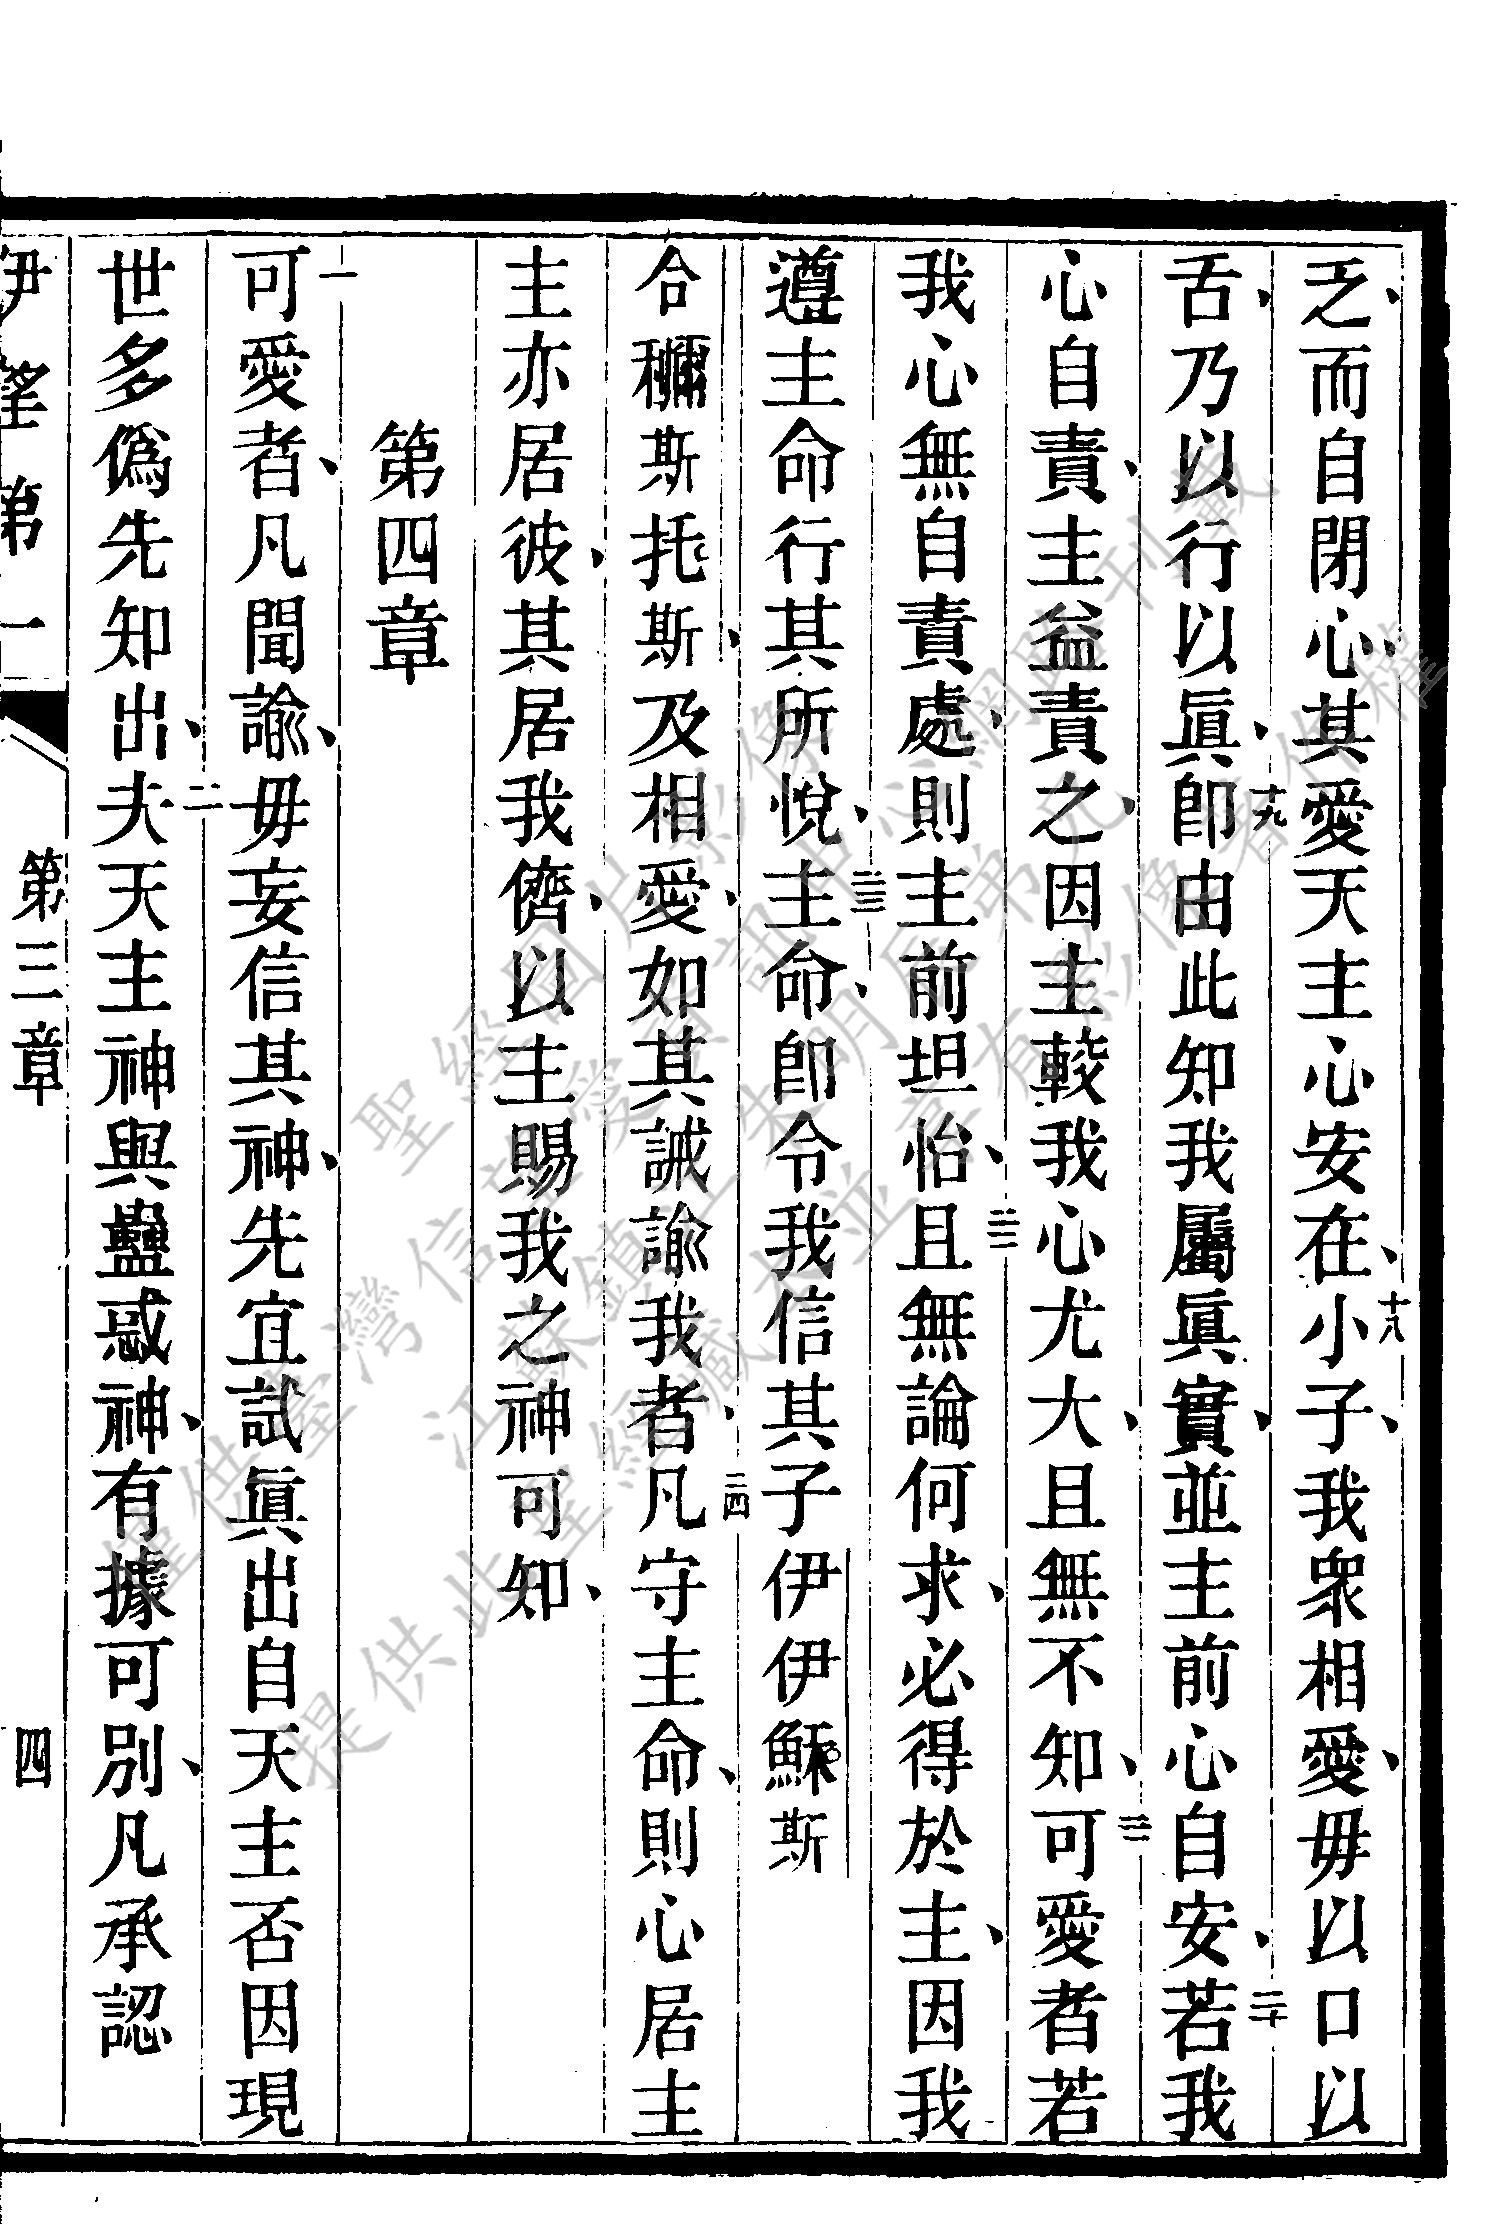 乏、而自閉心、其愛天主心安在、十八小子、我衆相愛、毋以口以
舌、乃以行以眞、十九卽由此知我屬眞實、並主前心自安、二十若我
心自責、主益責之、因主較我心尤大、且無不知、二一可愛者若
我心無自責處、則主前坦怡、二二且無論何求、必得於主、因我
遵主命行其所悅、二三主命、卽令我信其子伊伊穌斯
合穪斯托斯、及相愛、如其誡諭我者、二四凡守主命、則心居主
主亦居彼、其居我儕、以主賜我之神可知、
第四章
一可愛者、凡聞諭、毋妄信其神、先宜試眞出自天主否、因現
世多僞先知出、二夫天主神與蠱惑神、有據可別、凡承認
伊望第一 第三章 四
聖經圖片影像
僅供臺灣信望愛資訊中心網路刊載
江蘇鎮江朱明局弟兄
提供此聖經藏本並享有影像著作權